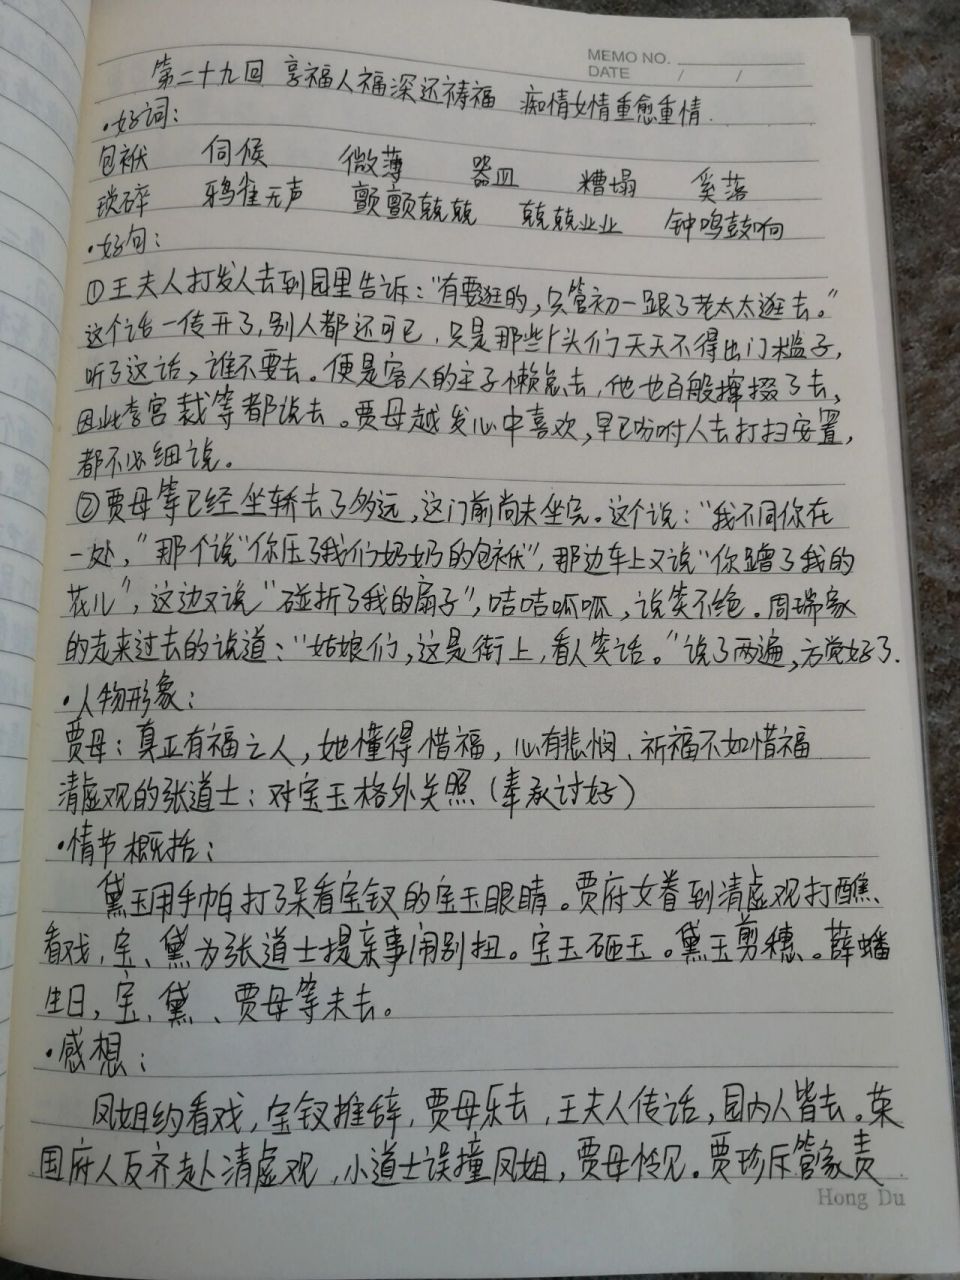 MEMO NO.
DATE / /
第二十九回 享福人福深还祷福 痴情女情重愈重情.
·好词:
包袱 伺候 微薄 器皿 糟塌 奚落
琐碎 鸦雀无声 颤颤兢兢 兢兢业业 钟鸣鼓响
·好句:
①王夫人打发人去到园里告诉:“有要逛的,只管初一跟了老太太逛去。”
这个话一传开了,别人都还可已,只是那些丫头们天天不得出门槛子,
听了这话,谁不要去。便是客人的主子懒怠去,他也百般撺掇了去,
因此李宫裁等都说去。贾母越发心中喜欢,早已吩咐人去打扫安置,
都不必细说。
②贾母等已经坐轿去了多远,这门前尚未坐完。这个说:“我不同你在
一处,”那个说“你压了我们奶奶的包袱”,那边车上又说“你蹭了我的
花儿”,这边又说“碰折了我的扇子”,咭咭呱呱,说笑不绝。周瑞家
的走来过去的说道:“姑娘们,这是街上,看人笑话。”说了两遍,方觉好了.
·人物形象:
贾母:真正有福之人,她懂得惜福,心有悲悯、祈福不如惜福
清虚观的张道士:对宝玉格外关照(奉承讨好)
·情节概括:
黛玉用手帕打了呆看宝钗的宝玉眼睛。贾府女眷到清虚观打醮
看戏,宝、黛为张道士提亲事闹别扭。宝玉砸玉。黛玉剪穗。薛蟠
生日,宝、黛、贾母等未去。
·感想:
凤姐约看戏,宝钗推辞,贾母乐去,王夫人传话,园内人皆去。荣
国府人反齐赴清虚观,小道士误撞凤姐,贾母怜见。贾珍斥管家责
Hong Du